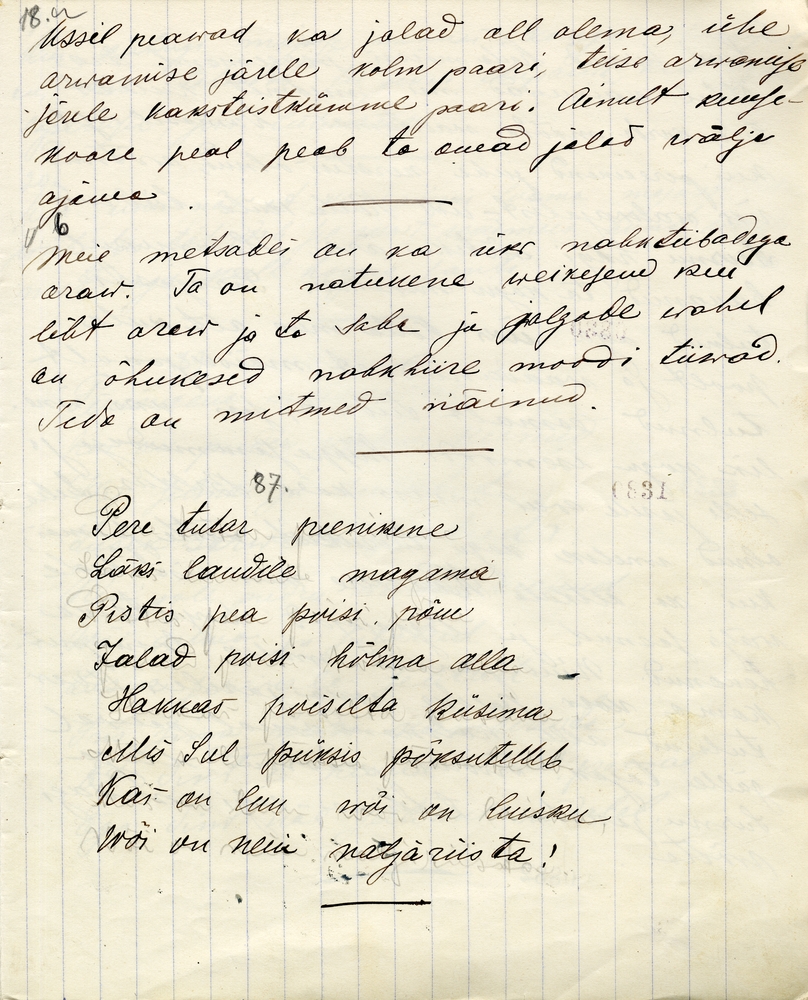 18. a
Ussil peawad ka jalad all olema, ühe
arwamise järele kolm paari, teise arwamise
järele kaksteistkümme paari. Ainult kuuse-
koore peal peab ta omad jalad wälja
ajama
b
Meie metsades on ka üks nahktiibadega
oraw. Ta on natukene weikesend kui
liht oraw ja ta saba ja jalgade wahel
on õhukesed nahkhiire moodi tiiwad.
Teda on mitmed näinud.
87.
0831
Pere tutar peenikene
Läks laudile magama
Pistis pea poisi põue
Jalad poisi hõlma alla
Hakkas poiselta küsima
Mis Sul püksis põksutelleb
Kas on luu wõi on luisku
Wõi on neiu naljariista!